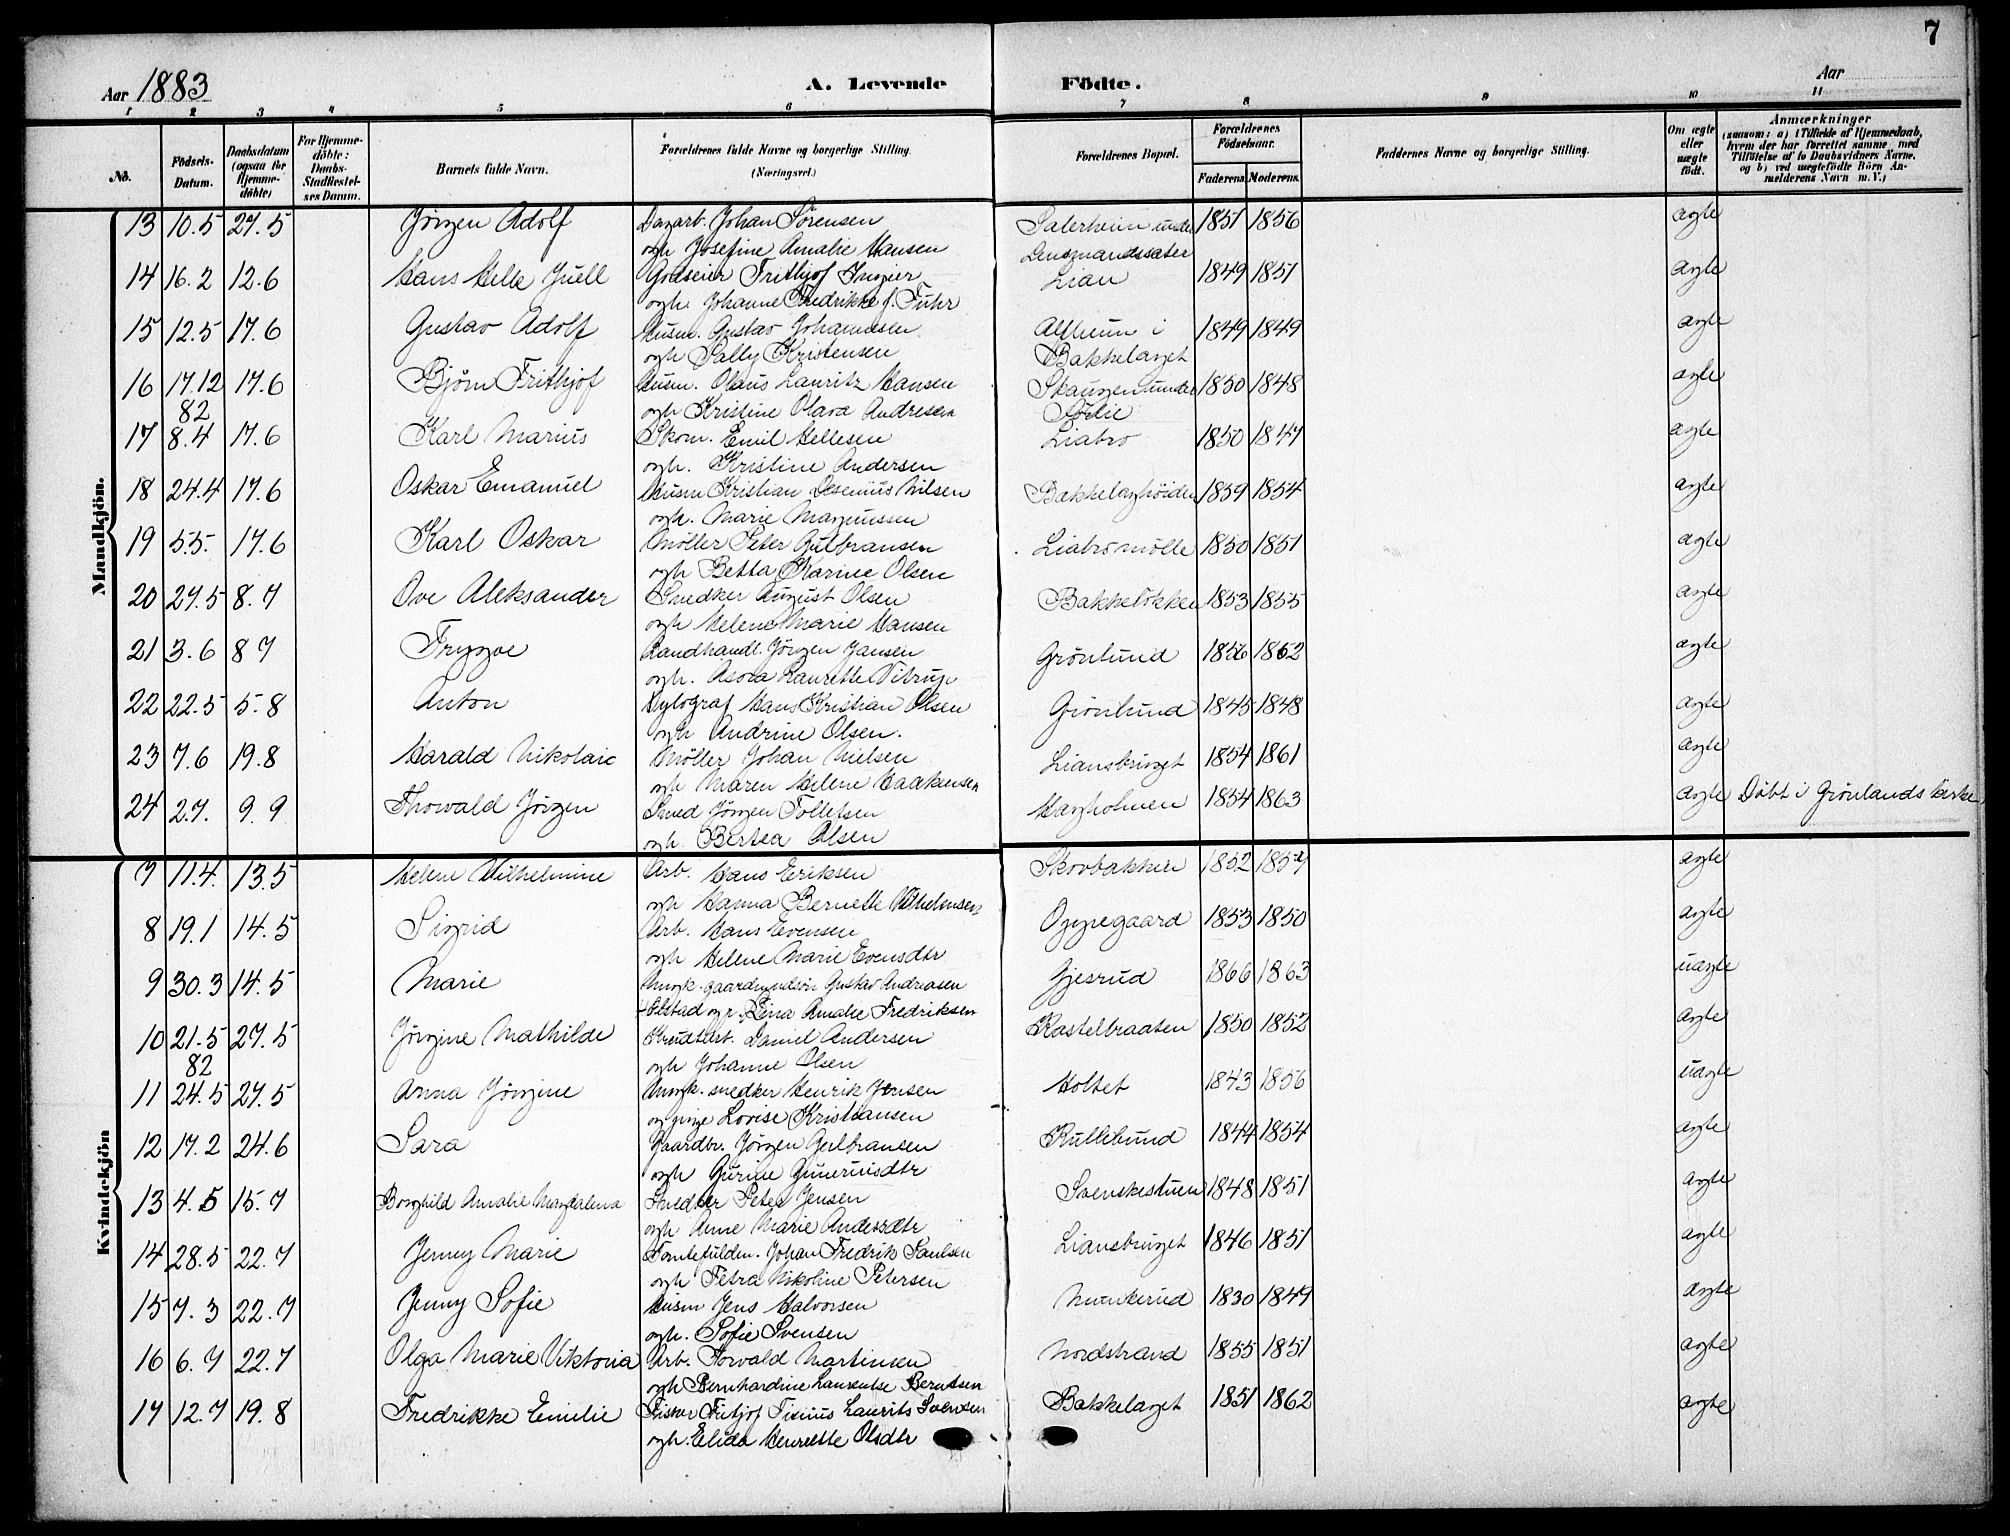 7
Aar 1883 A. Levende Födte. Aar
1 2 3 4 5 6 7 8 9 10 11
No. Födsels-Datum. Daabsdatum (ogsaa for Hjemme-döbte) For Hjemme-döbte: Daabs-Stadfæstel-ses Datum. Barnets fulde Navn. Forældrenes fulde Navne og borgerlige Stilling. (Næringsvei.) Forældrenes Bopæl. Forældrenes Födselsaar. Faderens Moderens. Faddernes Navne og borgerlige Stilling. Om ægte eller uægte födt. Anmærkninger (saasom: a) i Tilfælde af Hjemmedaab, hvem der har forrettet samme med Tilföielse af to Daabsvidners Navne, og b) ved uægtefödte Börn An-melderens Navn m. V.)
Mandkjön.
13 10.5 27.5 Jørgen Adolf Dagarb. Johan Sørensen Saterheim under 1851 1856 ægte
ogh Josefine Amalie Hansen Lensmandssæter
14 16.2 12.6 Hans Helle Juell Godseier Frithjof Ingier Lian 1849 1851 ægte
ogh. Johanne Fredrikke f. Fuhr
15 12.5 17.6 Gustav Adolf Husm. Gustav Johannesen Alfheim i 1849 1849 ægte
ogh Sally Kristensen Bækkelaget
16 17.12 17.6 Bjørn Frithjof Husm. Olaus Lauritz Hansen Skaugen under 1850 1848 ægte
82 ogh Kristine Olava Andresen
17 8.4 17.6 Karl Marius Skom. Emil Hellesen Liabro 1850 1847 ægte
ogh. Kristine Andersen
18 24.4 17.6 Oskar Emanuel Husm Kristian Desenius Nilsen Bækkelaghøiden 1859 1854 ægte
ogh. Marie Magnussen
19 5.5. 17.6 Karl Oskar Møller Peter Gulbransen Liabro mølle 1850 1851 ægte
ogh Betta Karine Olsen
20 27.5 8.7 Ove Aleksander Snedker August Olsen Bakkeløkken 1853 1855 ægte
ogh Helene Marie Hansen
21 3.6 8 7 Trygve Landhandl. Jørgen Jansen Grönlund 1856 1862 ægte
ogh. Asora Laurette Vitrup
22 22.5 5.8 Anton Xylograf Hans Kristian Olsen Grönlund 1845 1848 ægte
ogh Andrine Olsen.
23 7.6 19.8 Harald Nikolaic Møller Johan Nielsen Liansbruget 1854 1861 ægte
ogh Maren Helene Haakensen
24 2.7. 9 9 Thorvald Jørgen Smed Jørgen Tollefsen Hagholmen 1854 1863 ægte Døbt i Grönlands kirke
ogh. Bertea Olsen
Kvindekjön
7 11.4. 13.5 Helene Vilhelmine Arb. Hans Eriksen Skovbakken 1852 ægte
ogh Hanna Bernette Vilhelmsen
8 19.1 14.5 Sigrid Arb. Hans Evensen Oppegaard 1853 1850 ægte
ogh Helene Marie Evensdtr
9 30.3 14.5 Marie Ungk. gaardmandsön Gustav Andreasen Gjesrud 1866 1863 uægte
Elstad og p. Lina Amalie Fredriksen
10 21.5 27.5 Jørgine Mathilde Krudtarb. Daniel Andersen Kastelbraaten 1850 1852 ægte
82 ogh Johanne Olsen
11 24.5 27.5 Anna Jørgine Ungk. snedker Henrik Jensen Holtet 1843 1856 uægte
og pige Lovise Kristiansen
12 17.2 24.6 Sara Gaardbr. Jørgen Gulbransen Kullebund 1844 1854 ægte
ogh Gurine Gunerusdtr
13 4.5 15.7 Borghild Amalie Magdalena Snedker Peter Jensen Svenskestuen 1848 1851 ægte
ogh Anne Marie Andersdtr
14 28.5 22.7 Jenny Marie Tomtefulden. Johan Fredrik Paulsen Liansbruget 1846 1851 ægte
ogh Petra Nikoline Petersen
15 7.3 22.7 Jenny Sofie Husm Jens Halvorsen Munkerud 1830 1847 ægte
ogh. Sofie Svensen
16 6.7 22.7 Olga Marie Viktoria Arb. Torvald Martinsen Nordstrand 1855 1851 ægte
ogh Bernhardine Laurentse Berntsen
17 12.7 19.8 Fredrikke Emilie Fisker Fritjof Lauritz Svensen Bækkelaget 1851 1862 ægte
ogh. Elida Henriette Olsdtr